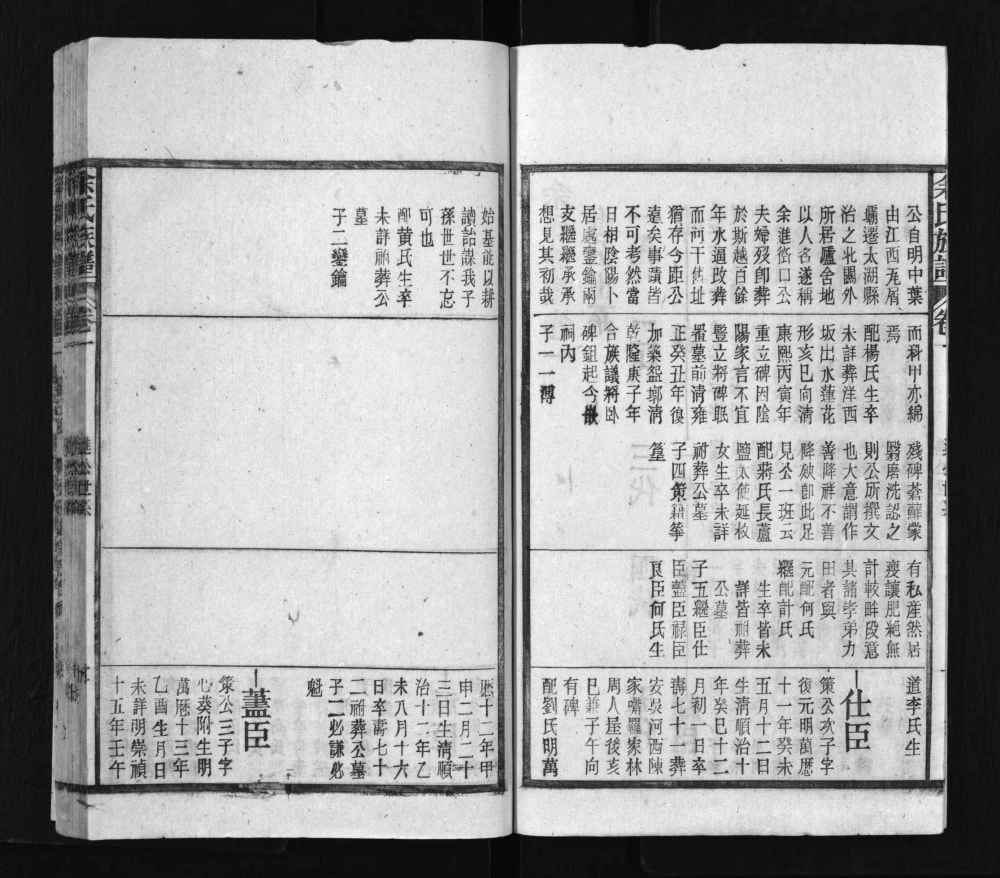 余氏族譜 卷一
公自明中葉
由江西瓦屑
壩遷太湖縣
治之北關外
所居廬舍地
以人名遂稱
余進衖口公
夫婦歿卽葬
於斯越百餘
年水逼改葬
而河干舊址
猶存今距公
遠矣事蹟皆
不可考然當
日相陰陽卜
居處鑾鑰兩
支繼繼承承
想見其初哉
而科甲亦綿
焉
配楊氏生卒
未詳葬洋西
坂出水蓮花
形亥巳向清
康熙丙寅年
重立碑因陰
陽家言不宜
豎立將碑眠
署墓前清雍
正癸丑年復
加築盌墎清
乾隆庚子年
合族議將卧
碑鈕起今嵌
祠內
子一一溥
殘碑蒼蘚蒙
翳磨洗認之
則公所撰文
也大意謂作
善降祥不善
降殃卽此足
見公一班云
配蔣氏長蘆
鹽太使延枚
女生卒未詳
祔葬公墓
子四策籍箏
篁
有私産然居
瘦讓肥絶無
計較畔段意
其諸孝弟力
田者與
元配何氏
繼配計氏
生卒皆未
詳皆祔葬
公墓
子五繼臣仕
臣藎臣祿臣
良臣何氏生
道李氏生
仕臣
策公次子字
復元明萬厯
十一年癸未
五月十二日
生清順治十
年癸巳十二
月初一日卒
壽七十一葬
安吳河西陳
家嘴羅家林
周人屋後亥
巳兼子午向
有碑
配劉氏明萬
始基能以耕
讀詒謀我子
孫世世不忘
可也
配黄氏生卒
未詳祔葬公
墓
子二鑾鑰
厯十二年甲
申二月二十
三日生清順
治十二年乙
未八月十六
日卒壽七十
二祔葬公墓
子二必謙必
魁
藎臣
策公三子字
心葵附生明
萬厯十三年
乙酉生月日
未詳明崇禎
十五年壬午
余氏族譜 卷一
進公世系